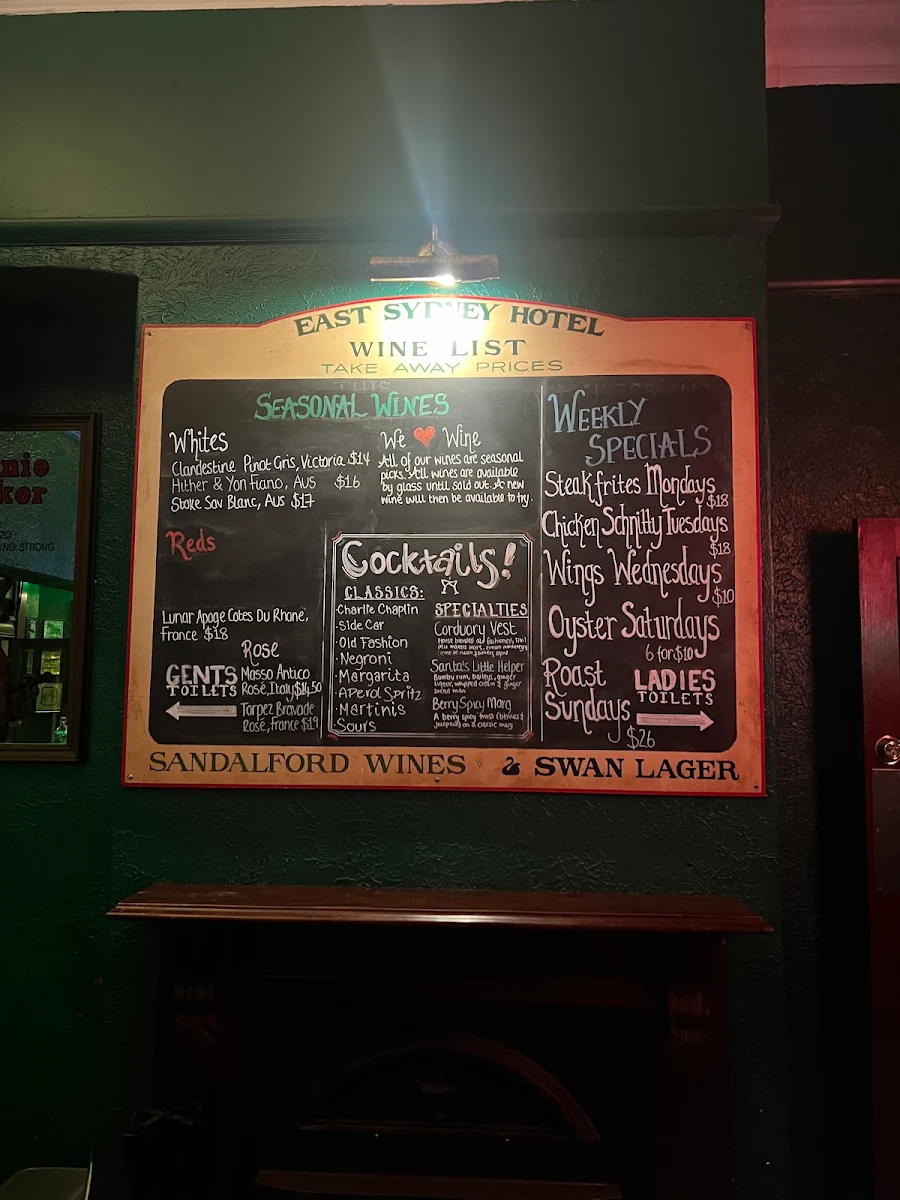 EAST SYDNEY HOTEL
WINE LIST
TAKE AWAY PRICES
THIS
SEASONAL WINES
Whites
Clandestine Pinot Gris, Victoria $14
Hither & Yon Fiano, AUS $16
Stoke Sav Blanc, AUS $17
We ❤ Wine
All of our wines are seasonal
picks. All wines are available
by glass until sold out. A new
wine will then be available to try.
Reds
Lunar Apoge Cotes Du Rhone,
France $18
Rose
Masso Antico
Rosé, Italy $14.50
Torpez Bravade
Rosé, France $19
GENTS
TOILETS
Cocktails!
CLASSICS:
·Charlie Chaplin
·Side Car
·Old Fashion
·Negroni
·Margarita
·Aperol Spritz
·Martinis
·Sours
SPECIALTIES
Corduory Vest
House blended old fashioned, trail
Santa's Little Helper
Bumbu rum, baileys, ginger
liqueur, whipped cream & ginger
bread man
Berry Spicy Marg
A berry spicy twist (berries &
jalapeño) on a classic marg
WEEKLY
SPECIALS
Steak frites Mondays
$18
Chicken Schnitty Tuesdays
$18
Wings Wednesdays
$10
Oyster Saturdays
6 for $10
Roast
Sundays
$26
LADIES
TOILETS
SANDALFORD WINES
SWAN LAGER
nie
ker
20-
NG STRONG